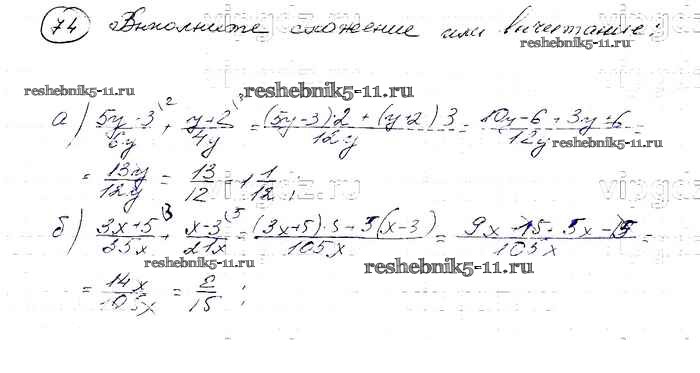 74 Выполните сложение или вычитание:
reshebnik5-11.ru
reshebnik5-11.ru
а) (5y-3)/6y + (y+2)/4y = ((5y-3)·2 + (y+2)3)/12y = (10y-6+3y+6)/12y =
reshebnik5-11.ru
= 13y/12y = 13/12 = 1 1/12;
б) (3x+5)/35x + (x-3)/21x = ((3x+5)·3+5(x-3))/105x = (9x+15+5x-15)/105x =
reshebnik5-11.ru
reshebnik5-11.ru
= 14x/105x = 2/15;
reshebnik5-11.ru